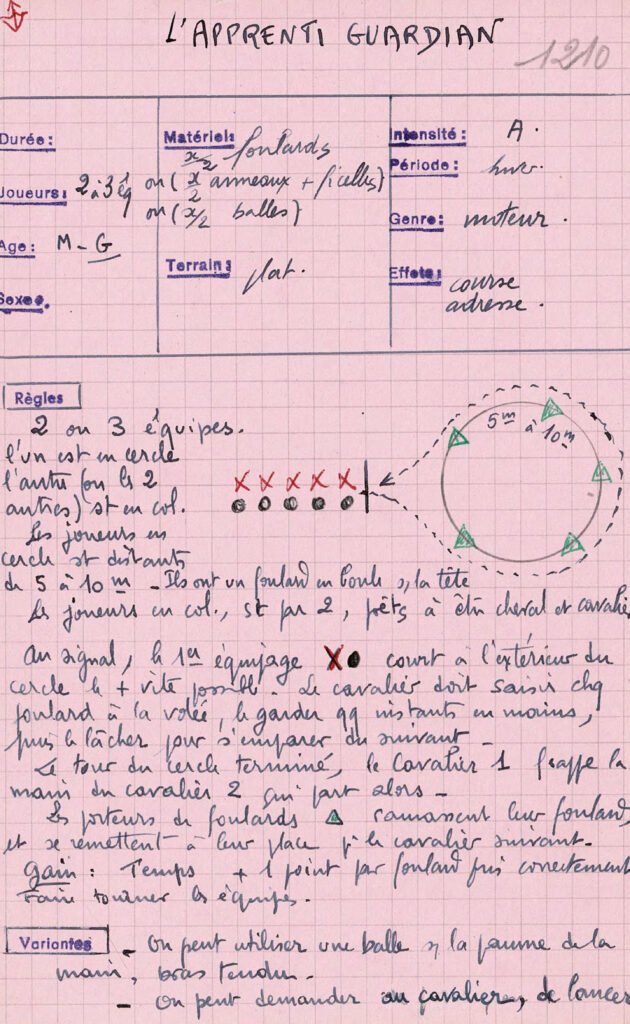 L'APPRENTI GUARDIAN
1210
Durée:
Joueurs: 2 à 3 éq
Age: M - G
Sexe:
Matériel: x/2 foulards
ou (x/2 anneaux + ficelles)
ou (x/2 balles)
Terrain: plat.
Intensité: A.
Période: hiver.
Genre: moteur.
Effets: course
adresse.
Règles
2 ou 3 équipes.
l'un est en cercle
l'autre (ou les 2
autres) st en col.
Les joueurs en
cercle st distants
de 5 à 10 m - Ils ont un foulard en boule s/ la tête
Les joueurs en col., st par 2, prêts à être cheval et cavalier
5m à 10m
X X X X X
Au signal, le 1er équipage X● court à l'extérieur du
cercle le + vite possible. Le cavalier doit saisir chq
foulard à la volée, le garder qq instants en mains,
puis le lâcher pour s'emparer du suivant -
Le tour du cercle terminé, le cavalier 1 frappe la
main du cavalier 2 qui part alors -
Les porteurs de foulards ▲ ramassent leur foulard,
et se remettent à leur place pr le cavalier suivant.
gain: Temps + 1 point par foulard pris correctement
Faire tourner les équipes.
Variantes
- On peut utiliser une balle s/ la paume de la
main, bras tendu.
- On peut demander au cavalier, de lancer